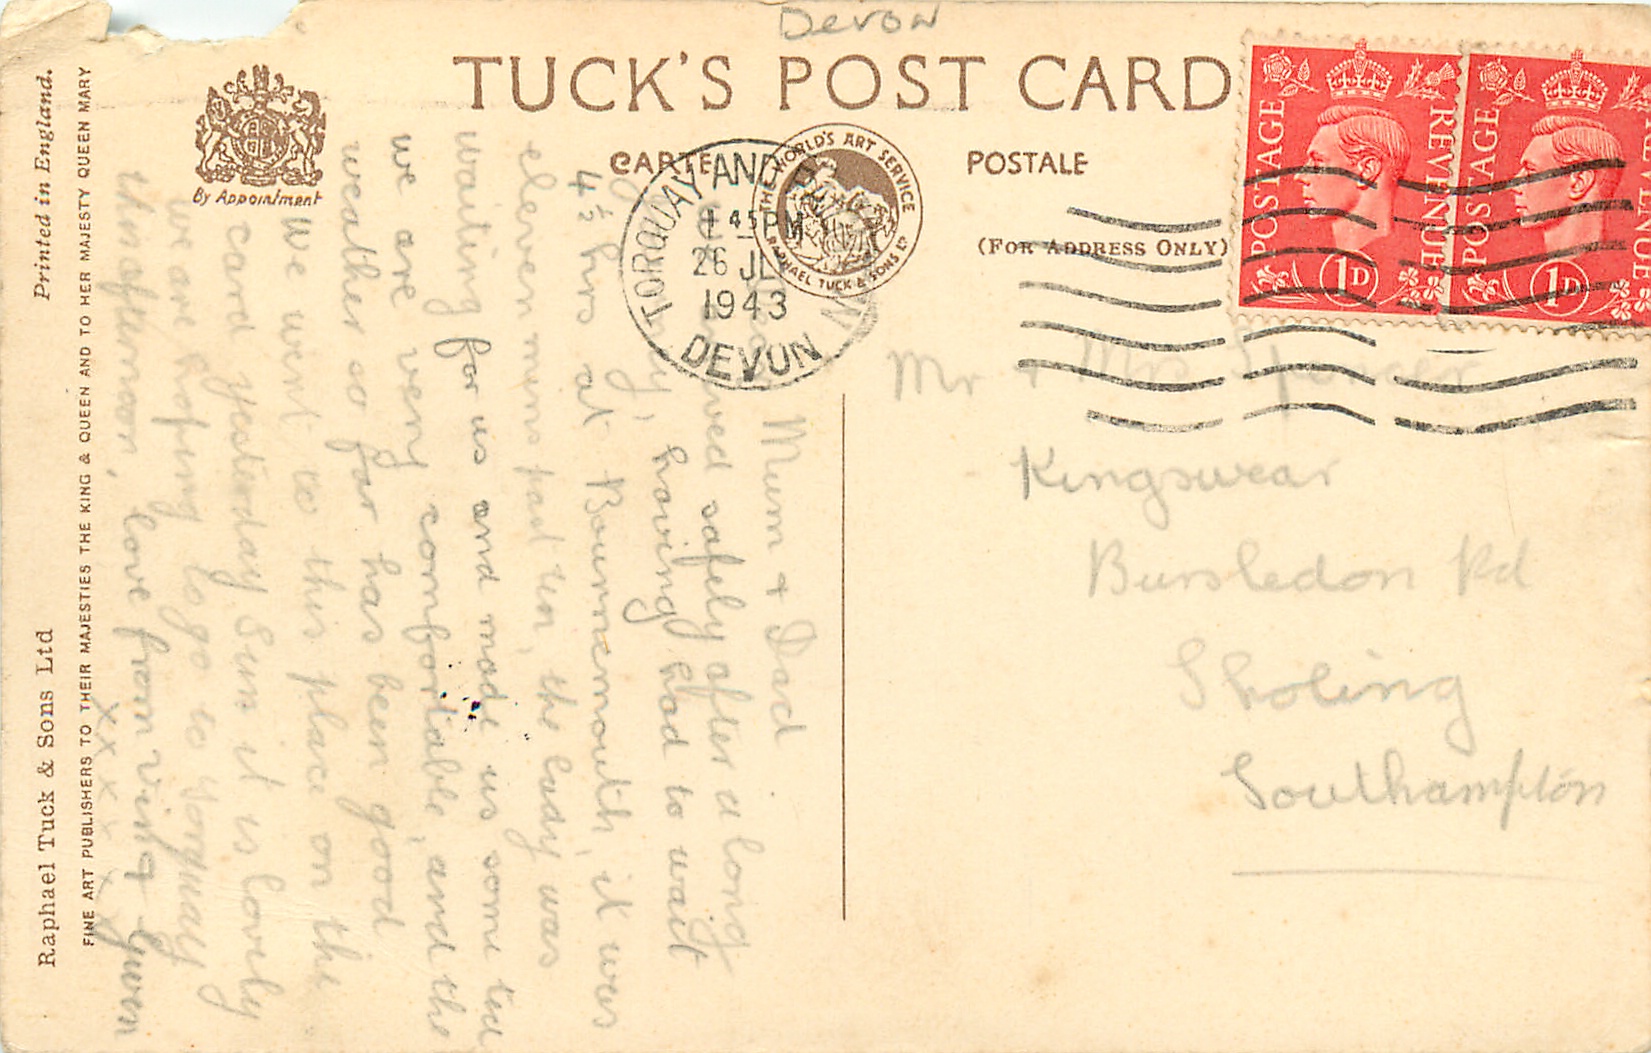 Devon
TUCK'S POST CARD
CARTE POSTALE
(FOR ADDRESS ONLY)
By Appointment
THE WORLD'S ART SERVICE
RAPHAEL TUCK & SONS LTD
TORQUAY AND
1 45 PM
26 JL
1943
DEVON
POSTAGE REVENUE
1D
POSTAGE REVENUE
1D
Mr & Mrs Spencer
Kingswear
Bursledon Rd
Sholing
Southampton
Mum & Dad
arrived safely after a long
having had to wait
4½ hrs at Bournemouth, it was
eleven mins past ten, the lady was
waiting for us and made us some tea
we are very comfortable, and the
weather so far has been good
We went to this place on the
card yesterday Sun it is lovely
we are hoping to go to Torquay
this afternoon, love from Vina & Gwen
x x x x x x
Printed in England.
Raphael Tuck & Sons Ltd
FINE ART PUBLISHERS TO THEIR MAJESTIES THE KING & QUEEN AND TO HER MAJESTY QUEEN MARY